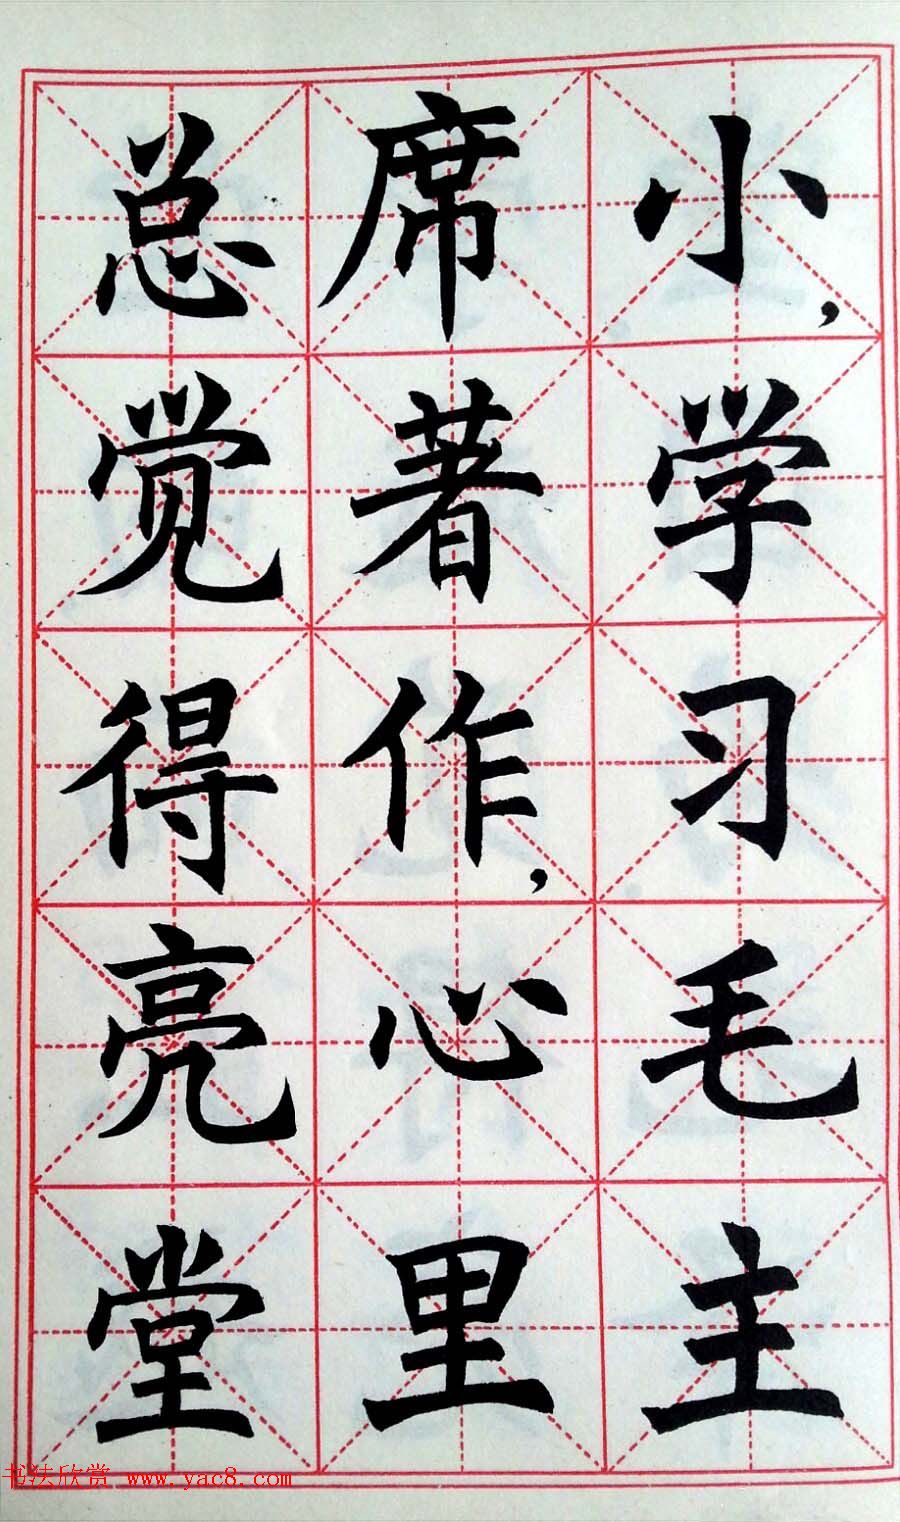 小,学习毛主
席著作,心里
总觉得亮堂
书法欣赏 www.yac8.com